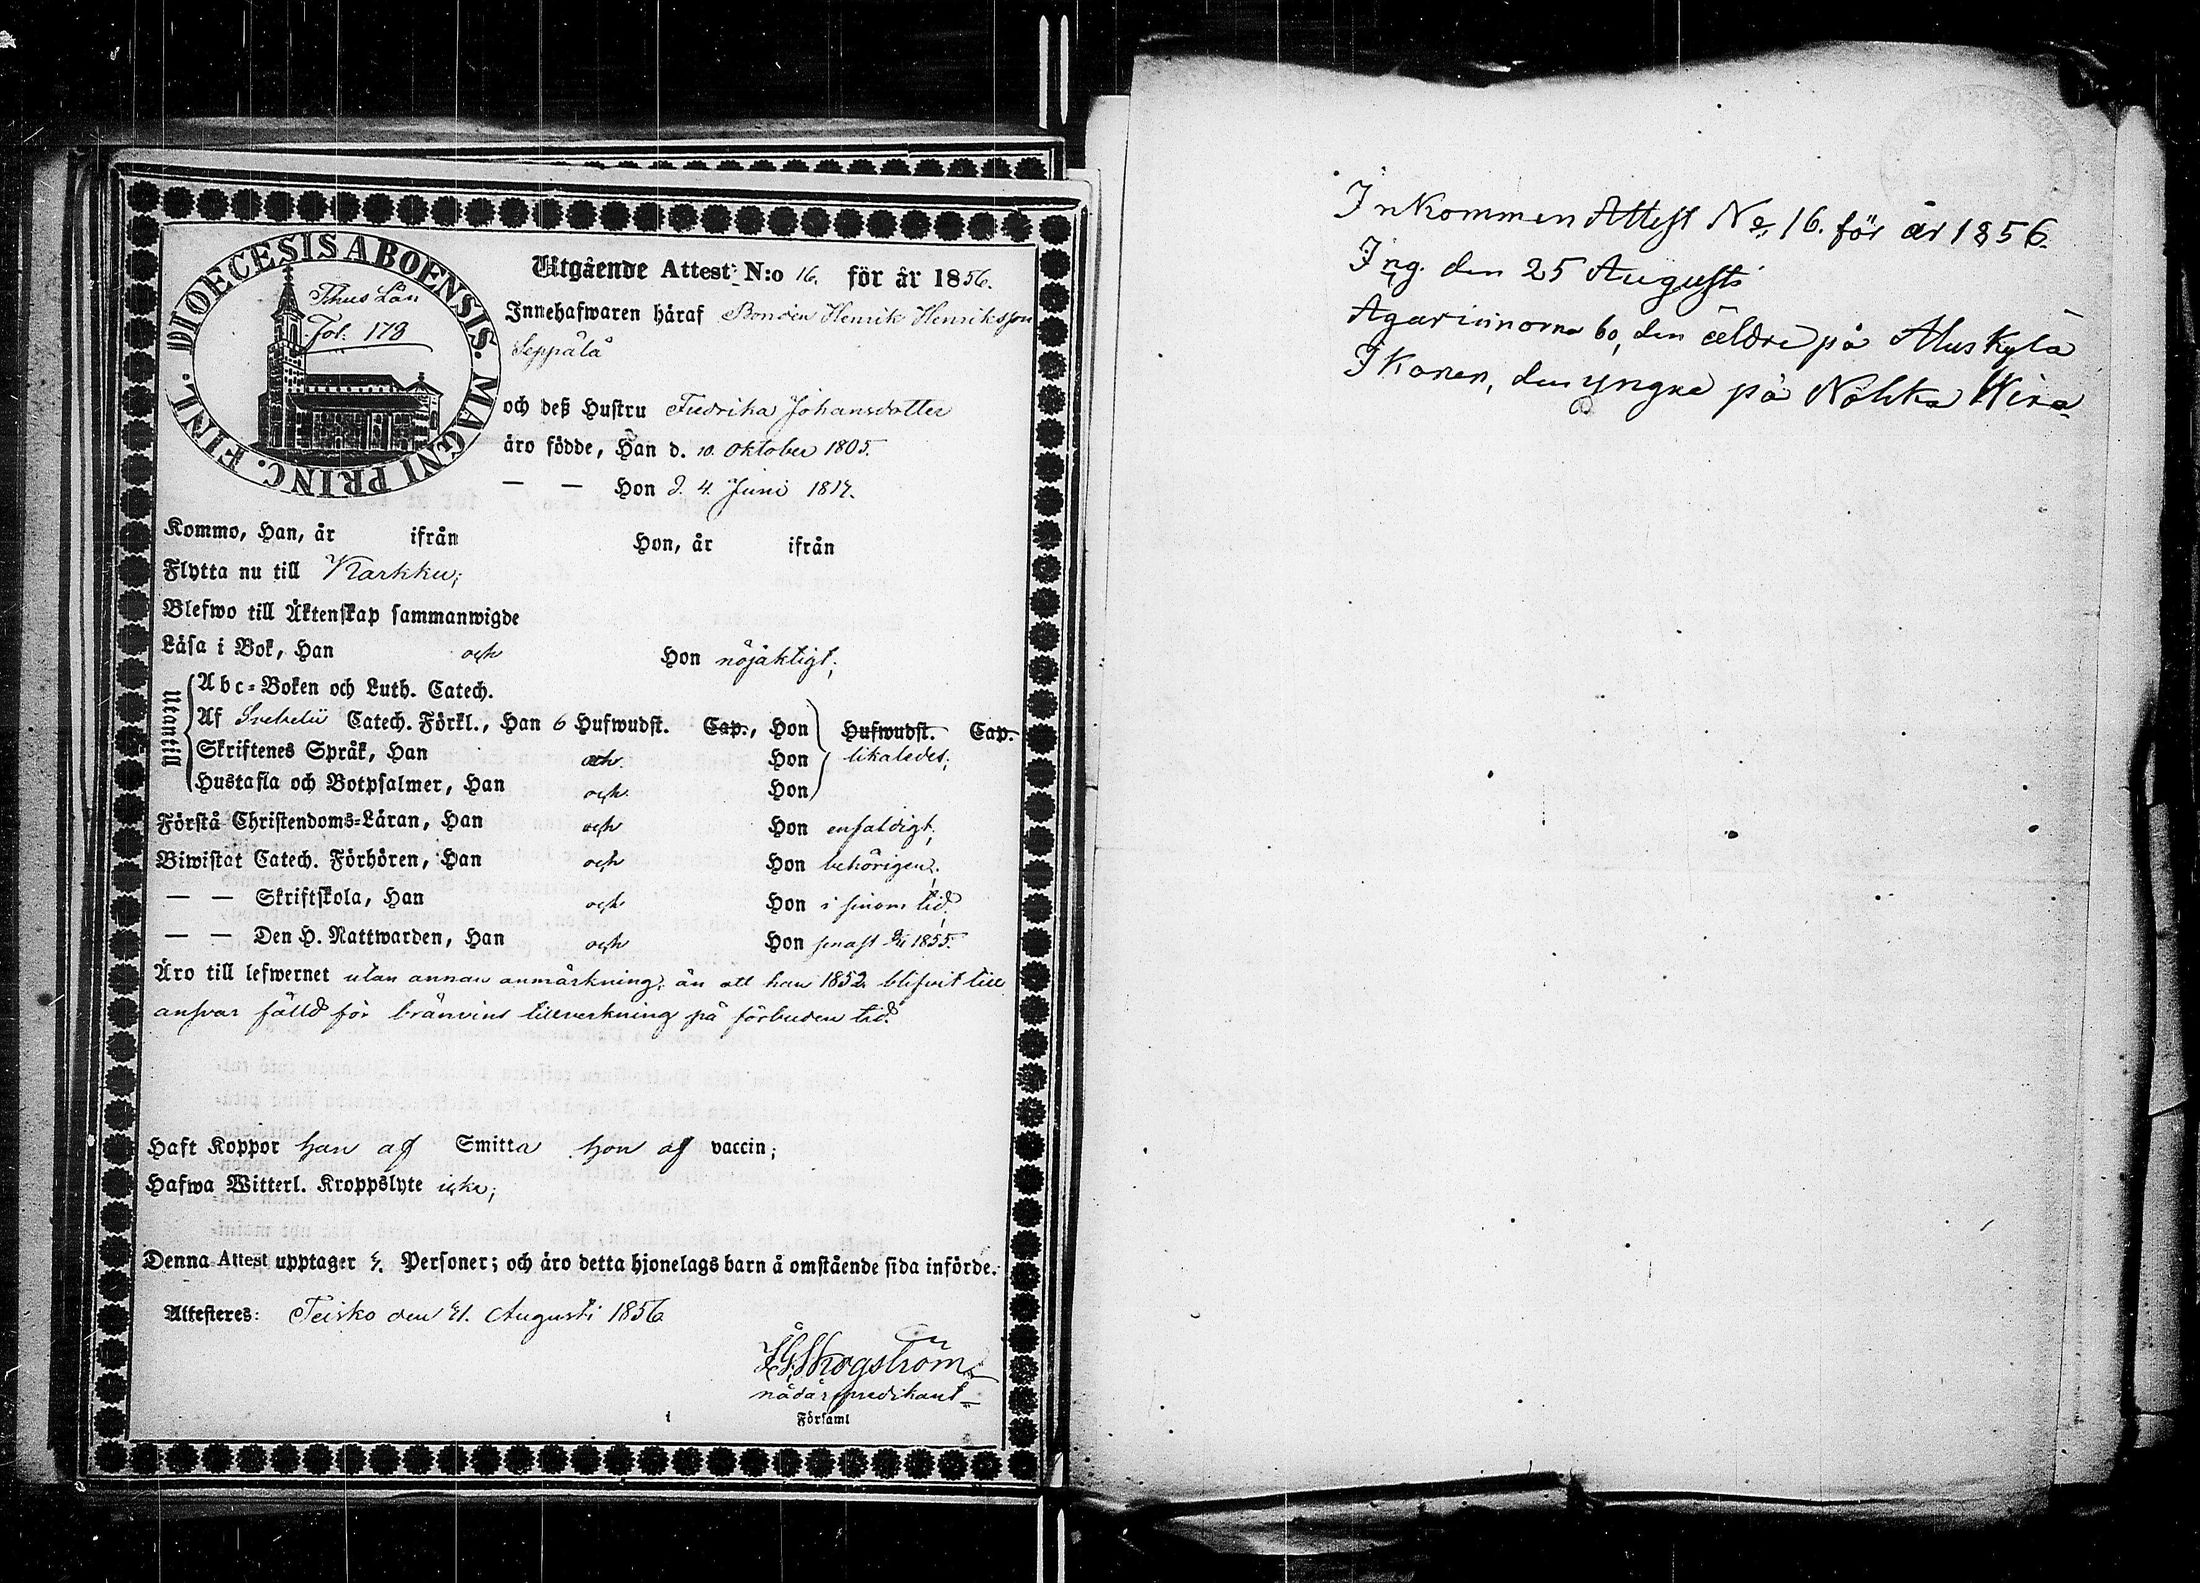 DIOECESIS ABOENSIS. MAGNI PRINC. FINL.
Thus Län
Fol. 173
Utgående Attest N:o 16. för år 1856.
Innehafwaren häraf Bonden Henrik Henriksson
Seppälä
och deß Hustru Fredrika Johansdotter
äro födde, Han d. 10. Oktober 1805.
— — Hon d. 4. Juni 1817.
Kommo, Han, år ifrån Hon, år ifrån
Flytta nu till Karkku;
Blefwo till Äktenskap sammanwigde
Läsa i Bok, Han och Hon nöjaktigt;
Utantill
Abc-Boken och Luth. Catech.
Af Svebelii Catech. Förkl., Han 6 Hufwudst. Cap., Hon Hufwudst. Cap.
Skriftenes Språk, Han och Hon likaledes;
Hustafla och Botpsalmer, Han och Hon
Förstå Christendoms-Läran, Han och Hon enfaldigt;
Biwistat Catech. Förhören, Han och Hon behörigen;
— — Skriftskola, Han och Hon i sinom tid;
— — Den H. Nattwarden, Han och Hon senast 1855.
Äro till lefwernet utan annan anmärkning, än att han 1852 blifvit till
ansvar fälld för bränvins tillverkning på förbuden tid.
Haft Koppor han af Smitta hon af vaccin;
Hafwa Witterl. Kroppslyte icke;
Denna Attest upptager Personer; och äro detta hjonelags barn å omstående sida införde.
Attesteres: Teisko den 21. Augusti 1856
Skogström
nådår spredikant
i Församl
Inkommen Attest No 16. för år 1856.
Ing. den 25 Augusti
Ägarinnorna bo, den äldre på Aluskylä
Ikonen, den yngre på Nohka Wira